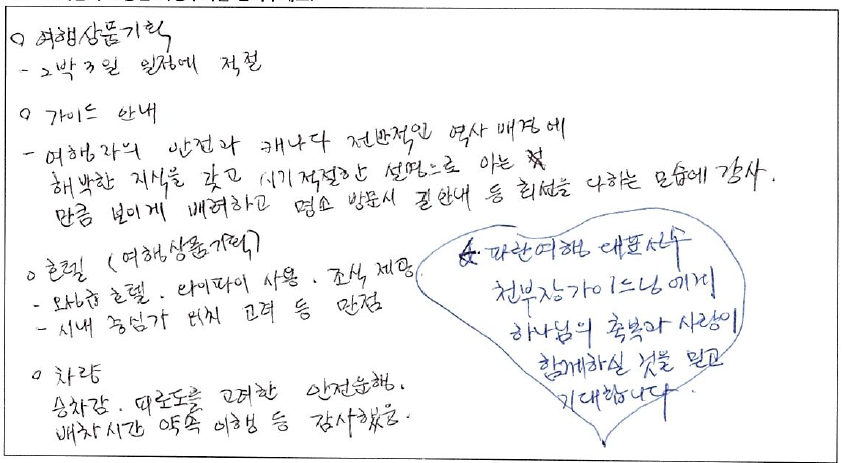 ○ 여행상품기획
- 2박 3일 일정에 적절
○ 가이드 안내
- 여행자의 안전과 캐나다 전반적인 역사 배경에
해박한 지식을 갖고 시기적절한 설명으로 아는
만큼 보이게 배려하고 명소 방문시 길안내 등 최선을 다하는 모습에 감사.
○ 호텔 (여행상품기획)
- 호텔. 와이파이 사용. 조식 제공
- 시내 중심가 위치 고려 등 만점
○ 차량
승차감. 피로도를 고려한 안전운행.
배차시간 약속 이행 등 감사했음.
파란여행 대표선수
천부장가이드님에게
하나님의 축복과 사랑이
함께하실 것을 믿고
기대합니다.